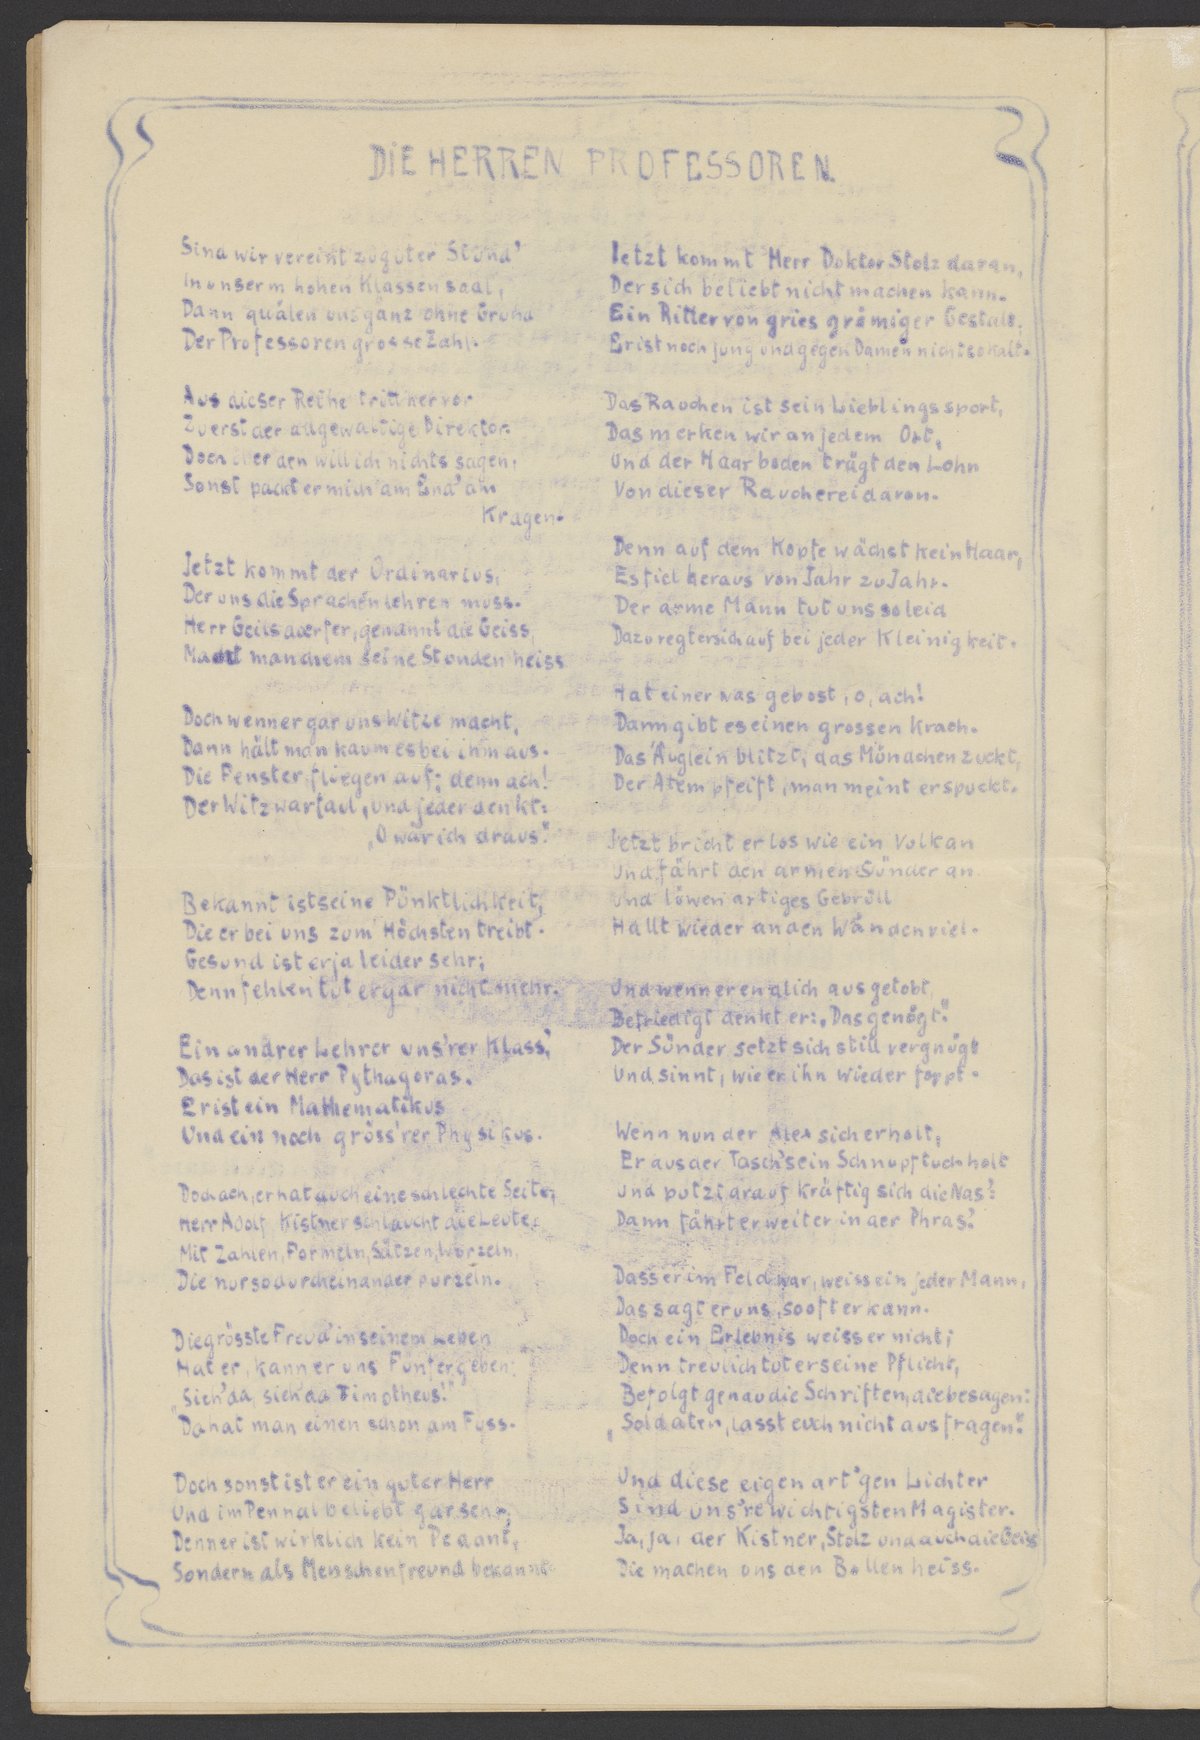 DIE HERREN PROFESSOREN
Sind wir vereint zu guter Stund'
In unserm hohen Klassensaal,
Dann quälen uns ganz ohne Grund
Der Professoren grosse Zahl.
Aus dieser Reihe tritt hervor
Zuerst der allgewaltige Direktor.
Doch über den will ich nichts sagen,
Sonst packt er mich am End' am
Kragen.
Jetzt kommt der Ordinarius,
Der uns die Sprachen lehren muss.
Herr Geilsdoerfer, genannt die Geiss,
Macht manchem seine Stunden heiss
Doch wenn er gar uns Witze macht,
Dann hält man kaum es bei ihm aus.
Die Fenster fliegen auf; denn ach!
Der Witz war faul, und jeder denkt:
„O wär ich draus."
Bekannt ist seine Pünktlichkeit,
Die er bei uns zum Höchsten treibt.
Gesund ist er ja leider sehr;
Denn fehlen tut er gar nicht mehr.
Ein andrer Lehrer uns'rer Klass',
Das ist der Herr Pythagoras.
Er ist ein Mathematikus
Und ein noch gröss'rer Physikus.
Doch ach, er hat auch eine schlechte Seite,
Herr Adolf Kistner schlaucht die Leute,
Mit Zahlen, Formeln, Sätzen, Wurzeln,
Die nur so durcheinander purzeln.
Die grösste Freud' in seinem Leben
Hat er, kann er uns Fünfer geben:
„Sieh' da, sieh' da Timotheus!"
Da hat man einen schon am Fuss.
Doch sonst ist er ein guter Herr
Und im Pennal beliebt gar sehr,
Denn er ist wirklich kein Pedant,
Sondern als Menschenfreund bekannt.
Jetzt kommt Herr Doktor Stolz daran,
Der sich beliebt nicht machen kann.
Ein Ritter von gries grämiger Gestalt.
Er ist noch jung und gegen Damen nicht so kalt.
Das Rauchen ist sein Lieblingssport,
Das merken wir an jedem Ort,
Und der Haarboden trägt den Lohn
Von dieser Raucherei davon.
Denn auf dem Kopfe wächst kein Haar,
Es fiel heraus von Jahr zu Jahr.
Der arme Mann tut uns so leid
Dazu regt er sich auf bei jeder Kleinigkeit.
Hat einer was gebost, o, ach!
Dann gibt es einen grossen Krach.
Das Äuglein blitzt, das Mündchen zuckt,
Der Atem pfeift, man meint er spuckt.
Jetzt bricht er los wie ein Vulkan
Und fährt den armen Sünder an
Und löwenartiges Gebrüll
Hallt wieder an den Wänden viel.
Und wenn er endlich ausgetobt,
Befriedigt denkt er: „Das genügt."
Der Sünder setzt sich still vergnügt
Und sinnt, wie er ihn wieder foppt.
Wenn nun der Alex sich erholt,
Er aus der Tasch' sein Schnupftuch holt
Und putzt drauf kräftig sich die Nas':
Dann fährt er weiter in der Phras'.
Dass er im Feld war, weiss ein jeder Mann,
Das sagt er uns, so oft er kann.
Doch ein Erlebnis weiss er nicht;
Denn treulich tut er seine Pflicht,
Befolgt genau die Schriften, die besagen:
„Soldaten, lasst euch nicht ausfragen".
Und diese eigenart'gen Lichter
Sind uns're wichtigsten Magister.
Ja, ja, der Kistner, Stolz und auch die Geiss
Die machen uns den Bollen heiss.